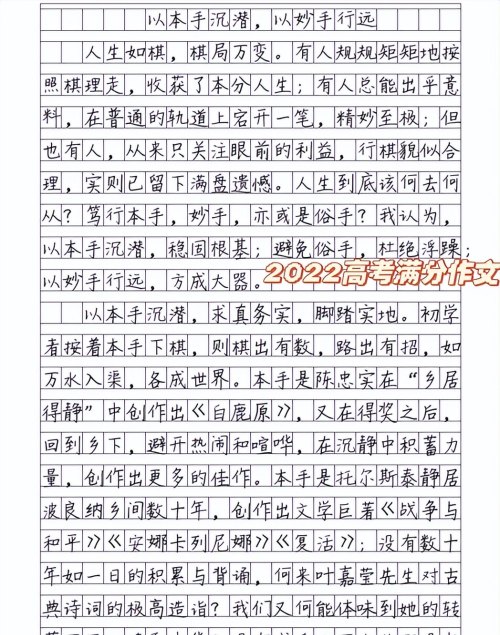 以本手沉潜，以妙手行远
人生如棋，棋局万变。有人规规矩矩地按
照棋理走，收获了本分人生；有人总能出乎意
料，在普通的轨道上宕开一笔，精妙至极；但
也有人，从来只关注眼前的利益，行棋貌似合
理，实则已留下满盘遗憾。人生到底该何去何
从？笃行本手，妙手，亦或是俗手？我认为，
以本手沉潜，稳固根基；避免俗手，杜绝浮躁；
以妙手行远，方成大器。
2022高考满分作文
以本手沉潜，求真务实，脚踏实地。初学
者按着本手下棋，则棋出有数，路出有招，如
万水入渠，各成世界。本手是陈忠实在“乡居
得静”中创作出《白鹿原》，又在得奖之后，
回到乡下，避开热闹和喧哗，在沉静中积蓄力
量，创作出更多的佳作。本手是托尔斯泰静居
波良纳乡间数十年，创作出文学巨著《战争与
和平》《安娜卡列尼娜》《复活》；没有数十
年如一日的积累与背诵，何来叶嘉莹先生对古
典诗词的极高造诣？我们又何能体味到她的转